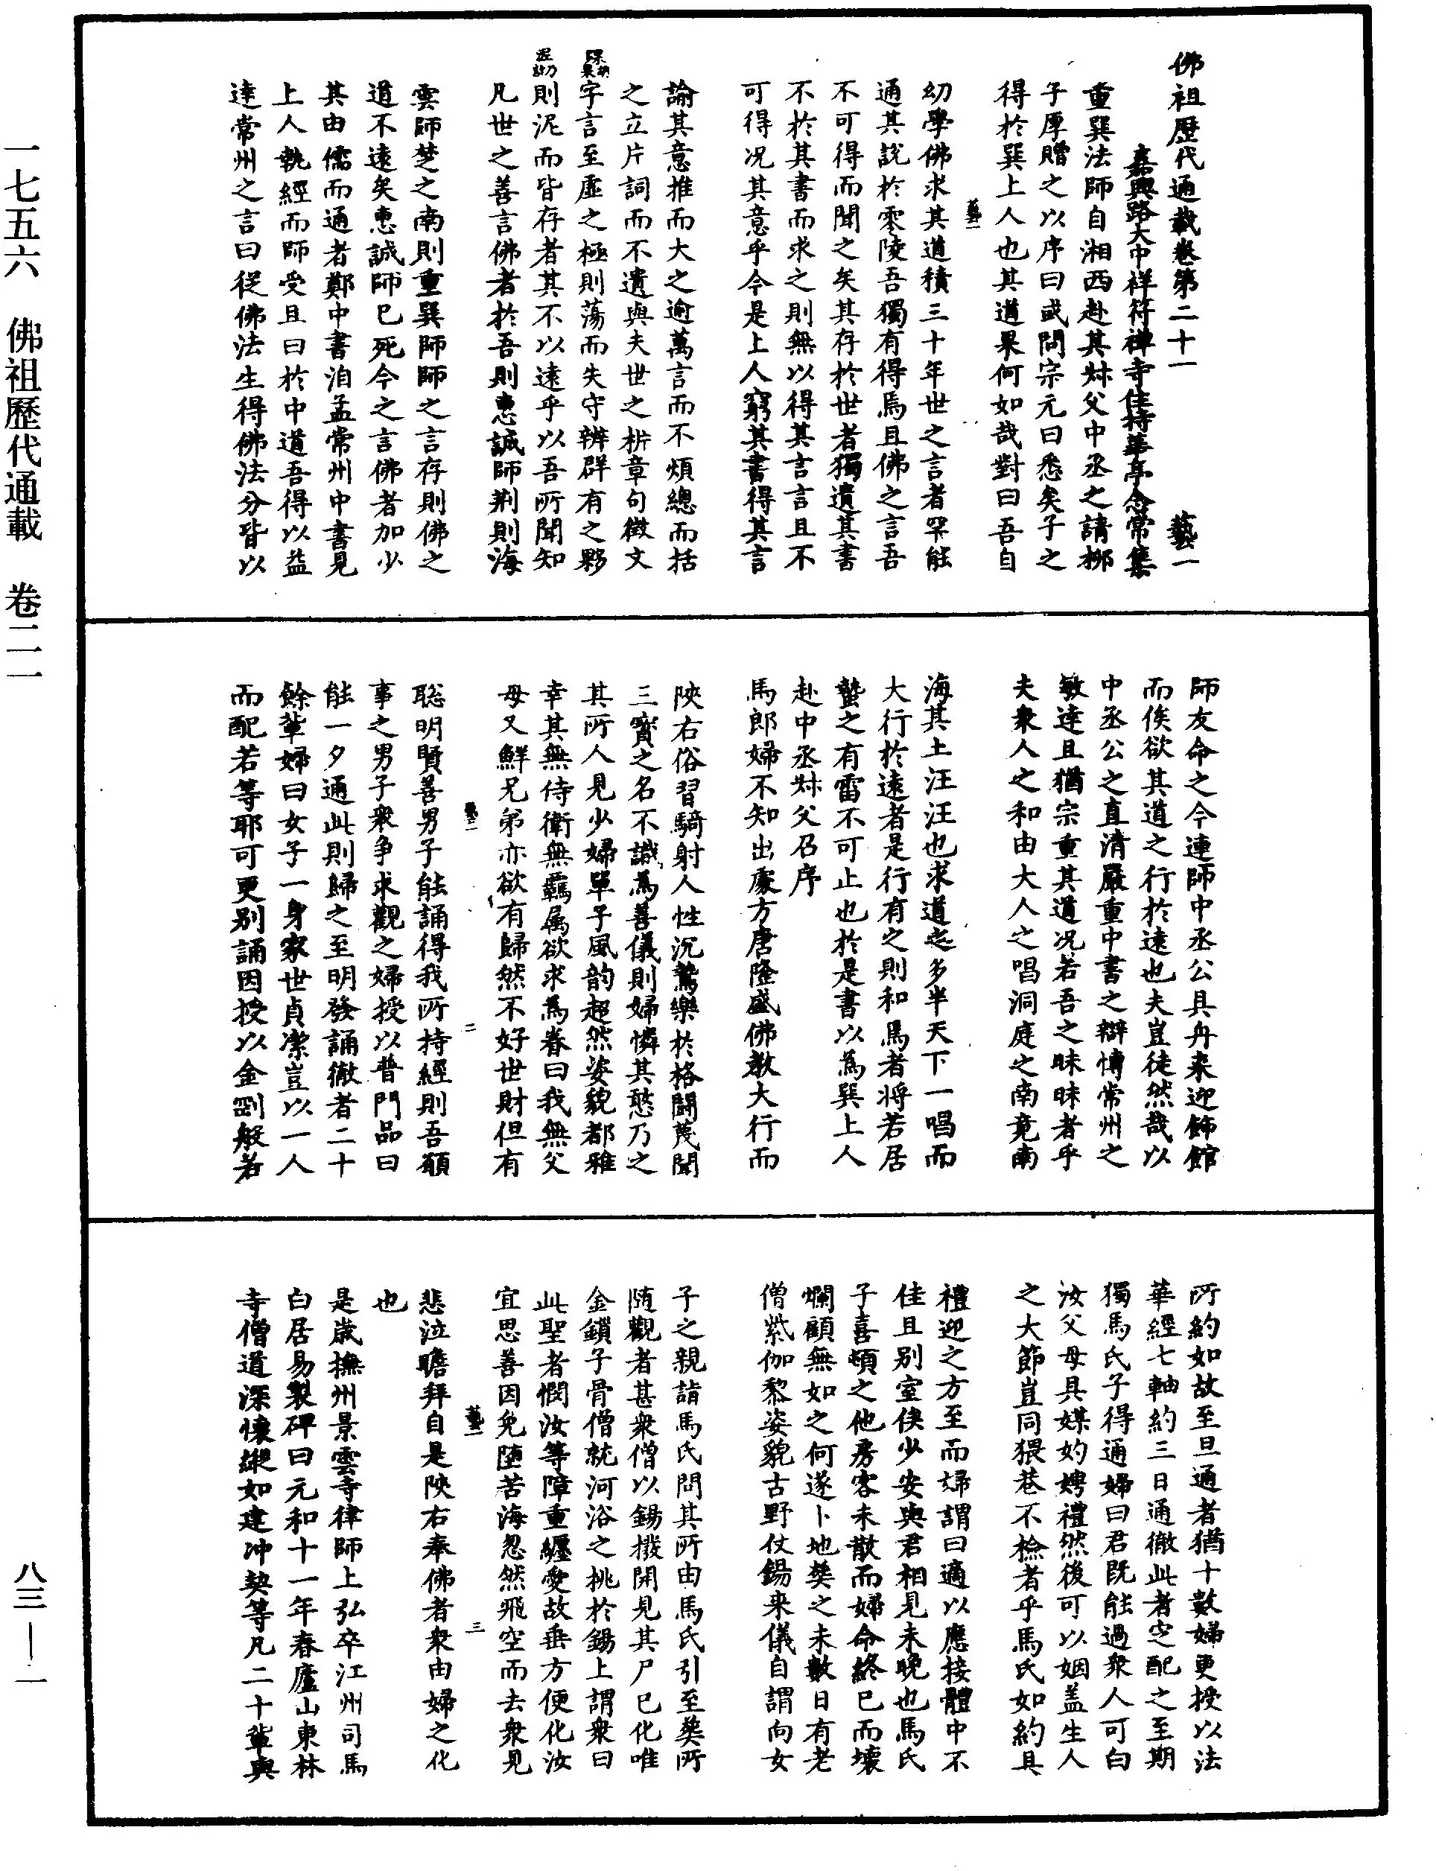 佛祖歷代通載卷第二十一 藝一
嘉興路大中祥符禪寺住持華亭念常集
重巽法師自湘西赴其叔父中丞之請栁
子厚贈之以序曰或問宗元曰悉矣子之
得於巽上人也其道果何如哉對曰吾自
幼學佛求其道積三十年世之言者罕能
通其說於零陵吾獨有得焉且佛之言吾
不可得而聞之矣其存於世者獨遺其書
不於其書而求之則無以得其言言且不
可得况其意乎今是上人窮其書得其言
諭其意推而大之逾萬言而不煩總而括
之立片詞而不遺與夫世之析章句徵文
字言至虛之極則蕩而失守辨群有之夥
則泥而皆存者其不以遠乎以吾所聞知
凡世之善言佛者於吾則惠誠師荆則海
雲師楚之南則重巽師師之言存則佛之
道不遠矣惠誠師已死今之言佛者加少
其由儒而通者鄭中書洎孟常州中書見
上人執經而師受且曰於中道吾得以益
達常州之言曰從佛法生得佛法分皆以
師友命之今連師中丞公具舟来迎飾館
而俟欲其道之行於遠也夫豈徒然哉以
中丞公之直清嚴重中書之辯愽常州之
敏達且猶宗重其道况若吾之昧昧者乎
夫衆人之和由大人之唱洞庭之南竟南
海其土汪汪也求道之多半天下一唱而
大行於遠者是行有之則和焉者将若居
蟄之有雷不可止也於是書以為巽上人
赴中丞叔父召序
馬郎婦不知出處方唐隆盛佛教大行而
陝右俗習騎射人性沉鷙樂於格鬪蔑聞
三寳之名不識為善儀則婦憐其憨乃之
其所人見少婦單子風韵超然姿貌都雅
幸其無侍衛無羈属欲求為眷曰我無父
母又鮮兄弟亦欲有歸然不好世財但有
聪明賢善男子能誦得我所持經則吾願
事之男子衆争求觀之婦授以普門品曰
能一夕通此則歸之至明發誦徹者二十
餘輩婦曰女子一身家世貞潔豈以一人
而配若等耶可更别誦因授以金剛般若
所約如故至旦通者猶十數婦更授以法
華經七軸約三日通徹此者定配之至期
獨馬氏子得通婦曰君既能過衆人可白
汝父母具媒妁娉禮然後可以姻盖生人
之大節豈同猥巷不檢者乎馬氏如約具
禮迎之方至而婦謂曰適以應接體中不
佳且别室俟少安與君相見未晚也馬氏
子喜頓之他房客未散而婦命終已而壞
爛顧無如之何遂卜地葬之未數日有老
僧紫伽黎姿貌古野仗錫来儀自謂向女
子之親詣馬氏問其所由馬氏引至葬所
随觀者甚衆僧以錫撥開見其尸已化唯
金鎖子骨僧就河浴之挑於錫上謂衆曰
此聖者憫汝等障重纏愛故垂方便化汝
宜思善因免墮苦海忽然飛空而去衆見
悲泣瞻拜自是陝右奉佛者衆由婦之化
也
是歲撫州景雲寺律師上弘卒江州司馬
白居易製碑曰元和十一年春廬山東林
寺僧道深懷縱如建冲契等凡二十輩與
一七五六 佛祖歷代通載 卷二一
八三—一